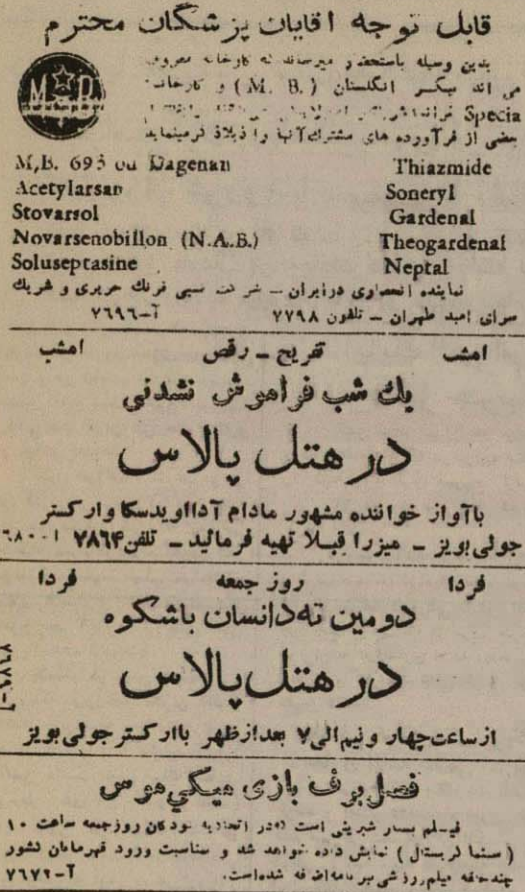 قابل توجه آقایان پزشگان محترم
بدین وسیله باستحضار میرساند که کارخانه معروف
می اند بیکر انگلستان (M. B.) و کارخانه
Specia
بعضی از فرآورده های مشترك آنها را ذیلا
M & B
M.B. 693 ou Dagenan Thiazmide
Acetylarsan Soneryl
Stovarsol Gardenal
Novarsenobillon (N.A.B.) Theogardenal
Soluseptasine Neptal
نماینده انحصاری درایران ـ شرکت نسبی فرنك حریری و شریك
سرای امید طهران ـ تلفون ۷۷۹۸ آ-۷۶۹۶
امشب تفریح ـ رقص امشب
یك شب فراموش نشدنی
در هتل پالاس
باآواز خواننده مشهور مادام آدااویدسکا وارکستر
جولی بویز ـ میزرا قبلا تهیه فرمائید ـ تلفن ۷۸۶۴
فردا روز جمعه فردا
دومین ته دانسان باشکوه
در هتل پالاس
ازساعت چهار ونیم الی ۷ بعدازظهر باارکستر جولی بویز
فصل برف بازی میکی موس
فیلم بسیار شیرینی است که در اتحادیه کودکان روزجمعه ساعت ۱۰
(سینما کریستال) نمایش داده خواهد شد و بمناسبت ورود قهرمانان کشور
چند حلقه فیلم ورزشی ببرنامه اضافه شده است. آ-۷۶۷۲